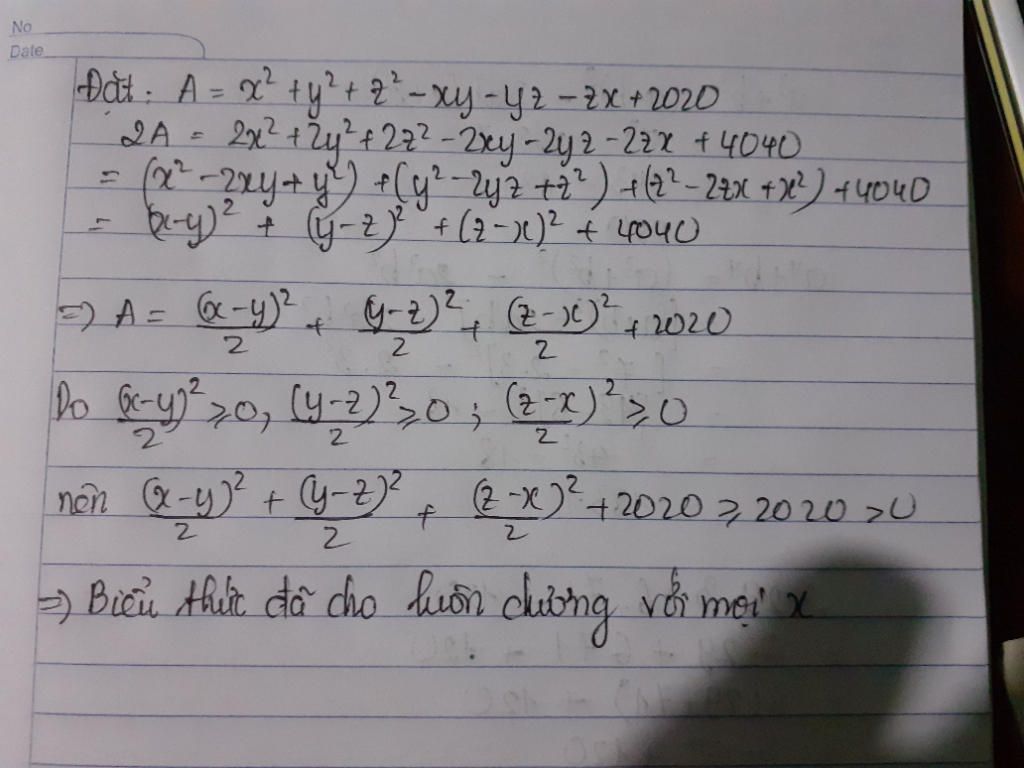 No
Date
Đặt: A = x² + y² + z² - xy - yz - zx + 2020
2A = 2x² + 2y² + 2z² - 2xy - 2yz - 2zx + 4040
= (x² - 2xy + y²) + (y² - 2yz + z²) + (z² - 2zx + x²) + 4040
= (x-y)² + (y-z)² + (z-x)² + 4040
=> A = (x-y)²/2 + (y-z)²/2 + (z-x)²/2 + 2020
Do (x-y)²/2 ≥ 0, (y-z)²/2 ≥ 0; (z-x)²/2 ≥ 0
nên (x-y)²/2 + (y-z)²/2 + (z-x)²/2 + 2020 ≥ 2020 > 0
=> Biểu thức đã cho luôn dương với mọi x